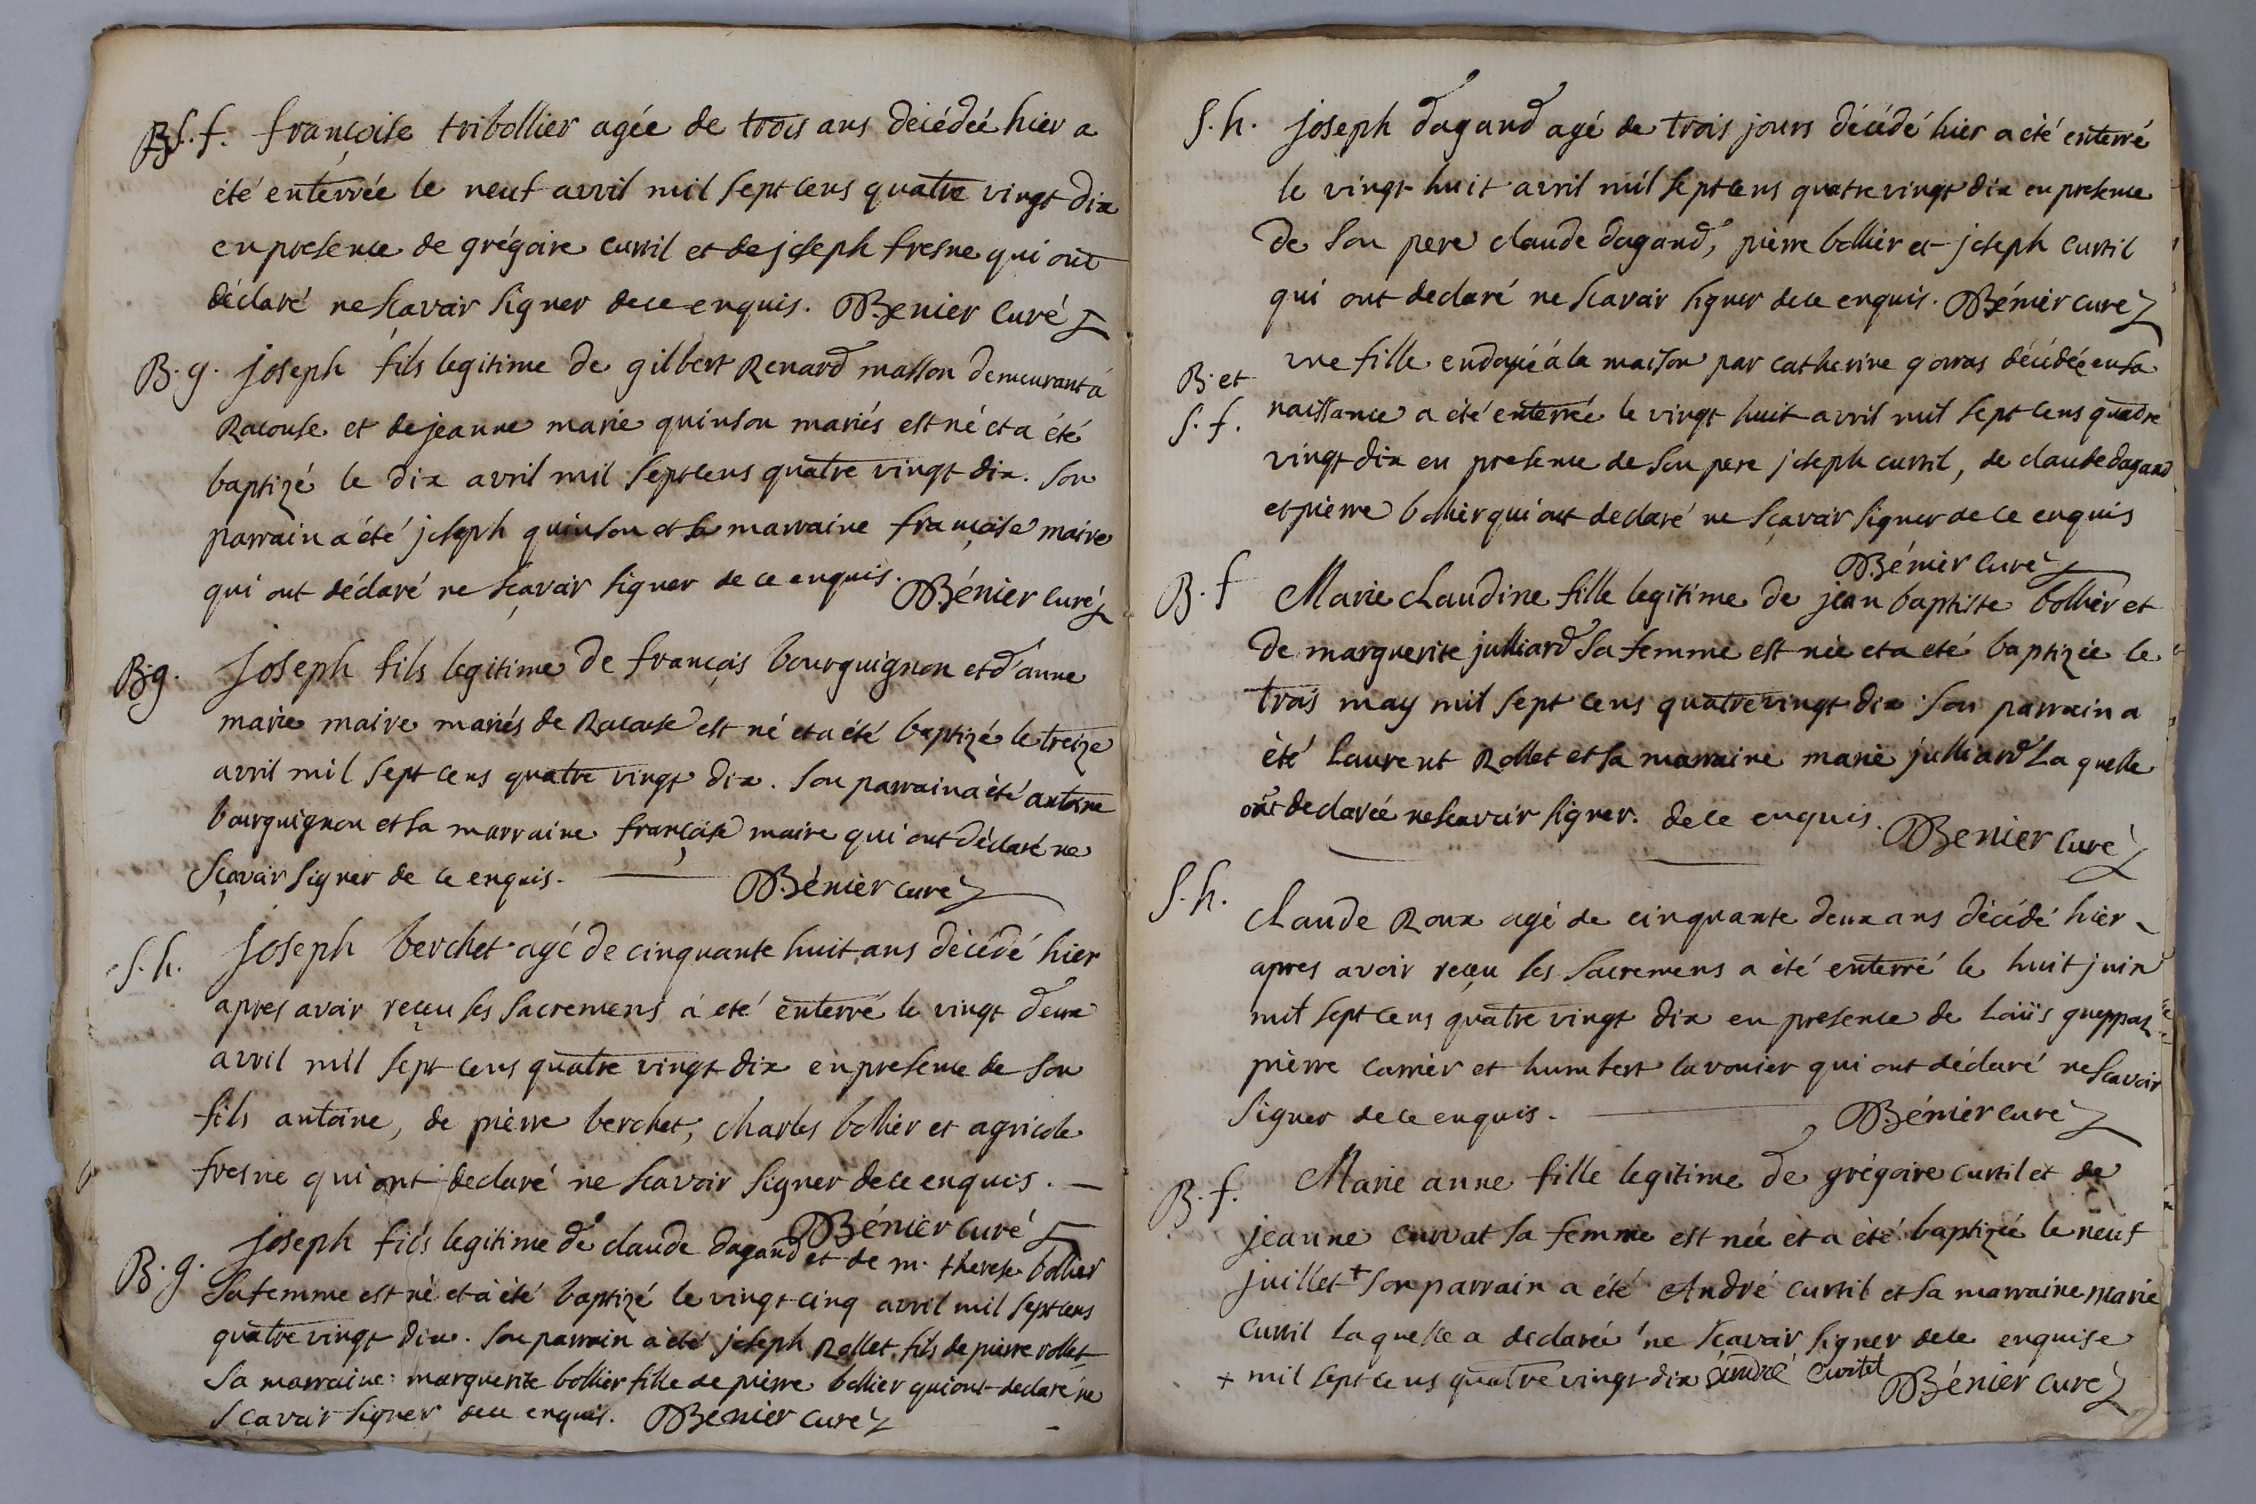 S. f. françoise tribollier agée de trois ans décédée hier a
été enterrée le neuf avril mil sept cens quatre vingt dix
en presence de grégoire curtil et de joseph fresne qui ont
déclaré ne sçavoir signer de ce enquis. Bénier curé
B. g. joseph fils legitime de gilbert Renard masson demeurant à
Racouse et de jeanne marie quinson mariés est né et a été
baptizé le dix avril mil sept cens quatre vingt dix. son
parrain a été joseph quinson et sa marraine françoise maire
qui ont déclaré ne sçavoir signer de ce enquis. Bénier curé
B. g. joseph fils legitime de françois bourguignon et d'anne
marie maire mariés de Racouse est né et a été baptizé le treize
avril mil sept cens quatre vingt dix. son parrain a été antoine
bourguignon et sa marraine françoise maire qui ont déclaré ne
sçavoir signer de ce enquis. Bénier curé
S. h. joseph berchet agé de cinquante huit ans décédé hier
apres avoir reçeu ses sacremens à eté enterré le vingt deux
avril mil sept cens quatre vingt dix en presence de son
fils antoine, de pierre berchet, charles bollier et agricole
fresne qui ont declaré ne scavoir signer de ce enquis. —
Bénier curé
B. g. joseph fils legitime de claude dagand et de m. therese bollier
sa femme est né et a été baptizé le vingt cinq avril mil sept cens
quatre vingt dix. son parrain a été joseph Rollet fils de pierre rollet
sa marraine marguerite bollier fille de pierre bollier qui ont declaré ne
sçavoir signer de ce enquis. Bénier curé
S. h. joseph dagand agé de trois jours décédé hier a été enterré
le vingt huit avril mil sept cens quatre vingt dix en presence
de son pere claude dagand, pierre bollier et joseph curtil
qui ont declaré ne scavoir signer de ce enquis. Bénier curé
B. et S. f. une fille endoyée à la maison par catherine gorras décédée en sa
naissance a été enterrée le vingt huit avril mil sept cens quatre
vingt dix en presence de son pere joseph curtil, de claude dagand
et pierre bollier qui ont declaré ne sçavoir signer de ce enquis
Bénier curé
B. f Marie claudine fille legitime de jean baptiste bollier et
de marguerite julliard sa femme est née et a eté baptizée le
trois may mil sept cens quatre vingt dix son parrain a
été Laurent Rollet et sa marraine marie julliard La quelle
ont declarée ne scavoir signer. de ce enquis. Bénier curé
S. h. claude Roux agé de cinquante deux ans décédé hier
apres avoir reçeu ses sacremens a été enterré le huit juin
mil sept cens quatre vingt dix en presence de Loüis gueppaz
pierre carrier et humbert lavonier qui ont déclaré ne scavoir
signer de ce enquis. Bénier curé
B. f. Marie anne fille legitime de grégoire curtil et de
jeanne curvat sa femme est née et a été baptizée le neuf
juillet + son parrain a été André curtil et sa marraine marie
curtil la quelle a declarée ne scavoir signer de ce enquise
+ mil sept cens quatre vingt dix andré curtil Bénier curé